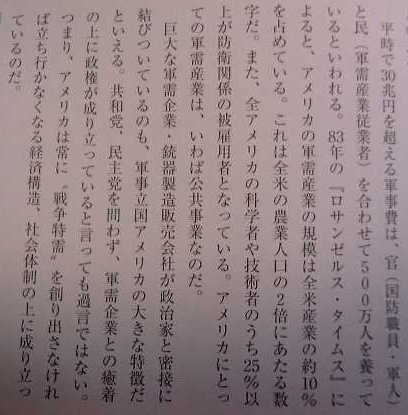 平時で30兆円を超える軍事費は、官（国防職員・軍人）
と民（軍需産業従業者）を合わせて５００万人を養って
いるといわれる。83年の『ロサンゼルス・タイムス』に
よると、アメリカの軍需産業の規模は全米産業の約10％
を占めている。これは全米の農業人口の２倍にあたる数
字だ。また、全アメリカの科学者や技術者のうち25％以
上が防衛関係の被雇用者となっている。アメリカにとっ
ての軍需産業は、いわば公共事業なのだ。
巨大な軍需企業・銃器製造販売会社が政治家と密接に
結びついているのも、軍事立国アメリカの大きな特徴だ
といえる。共和党、民主党を問わず、軍需企業との癒着
の上に政権が成り立っていると言っても過言ではない。
つまり、アメリカは常に〝戦争特需〟を創り出さなけれ
ば立ち行かなくなる経済構造、社会体制の上に成り立っ
ているのだ。